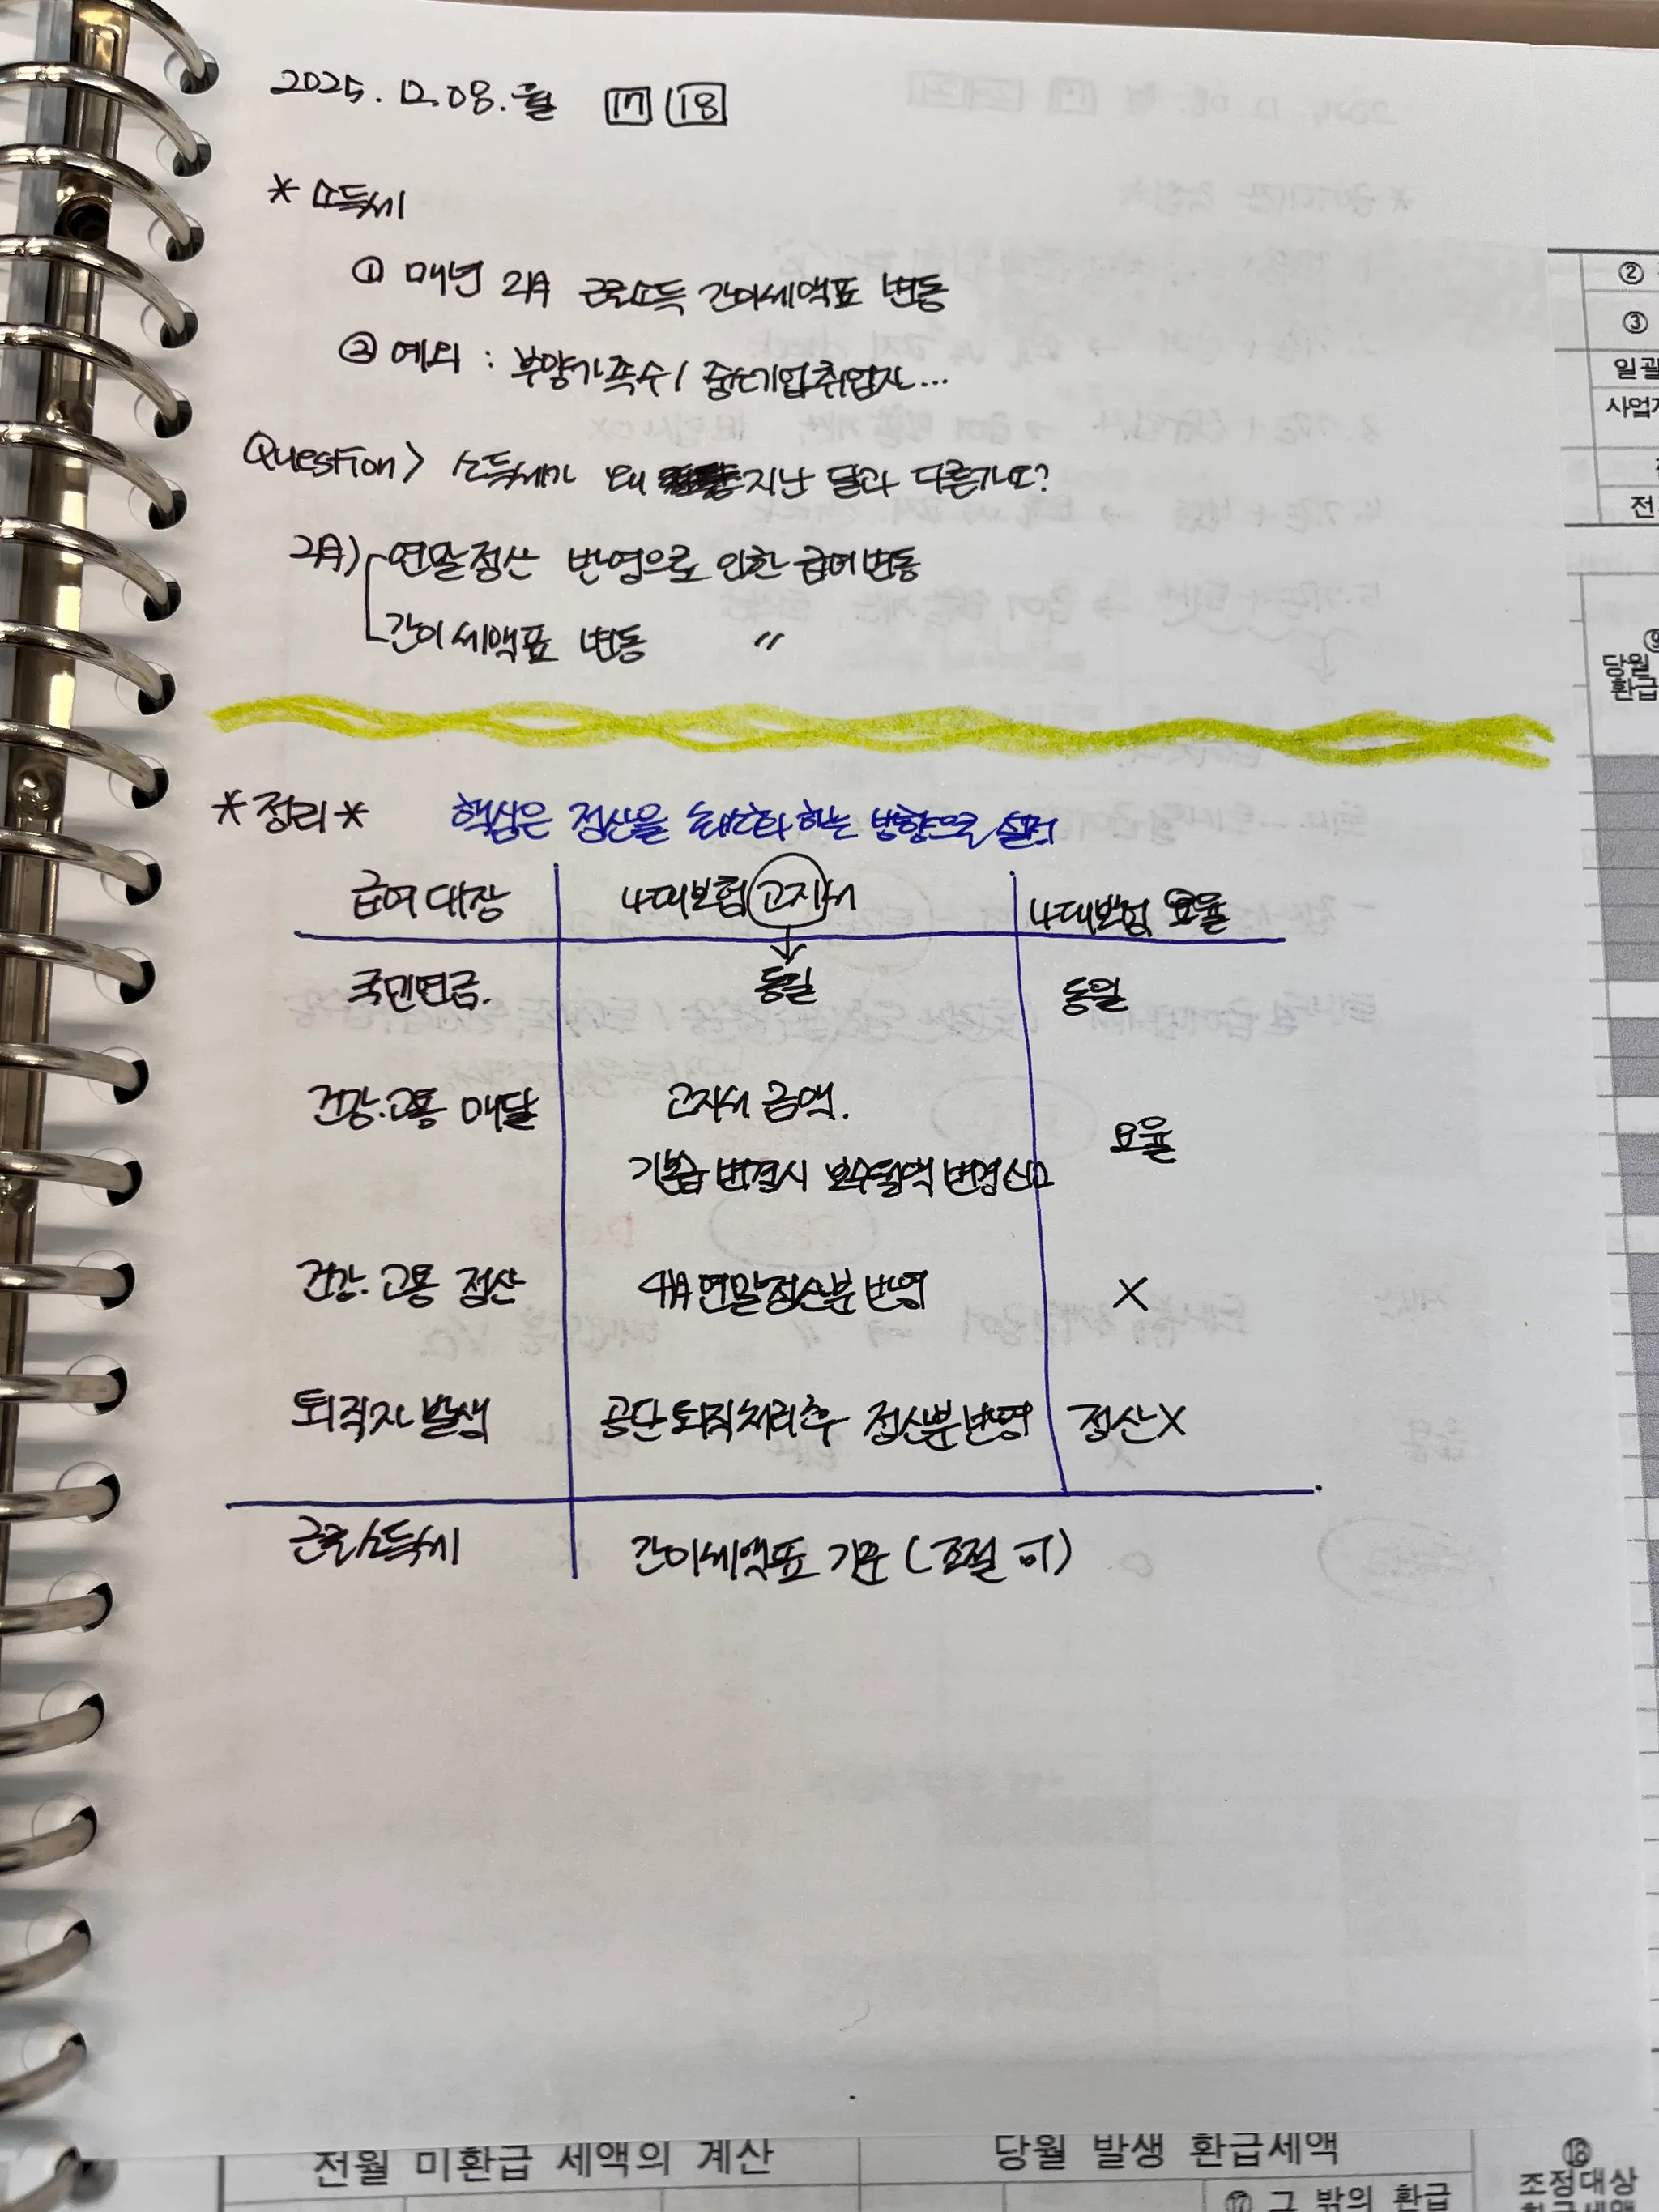 2025. 12. 08. 월 17 18
* 소득세
① 매년 2月 근로소득 간이세액표 변동
② 예외 : 부양가족수 / 중소기업취업자...
Question> 소득세가 왜 지난 달과 다른가요?
2月) 연말정산 반영으로 인한 급여변동
간이세액표 변동 〃
*정리* 핵심은 정산을 최소화 하는 방향으로
급여대장 4대보험 고지서 4대보험 요율
국민연금. 동일 동일
건강.고용 매달 고지서 금액. 요율
기본급 변경시 보수월액 변경신고
건강.고용 정산 4月 연말정산분 반영 X
퇴직자 발생 공단 퇴직처리후 정산분 반영 정산X
근로소득세 간이세액표 기준 (조절 可)
②
③
일괄
사업자
전
당월
환급
전월 미환급 세액의 계산 당월 발생 환급세액 ⑱
조정대상
⑰ 그 밖의 환급